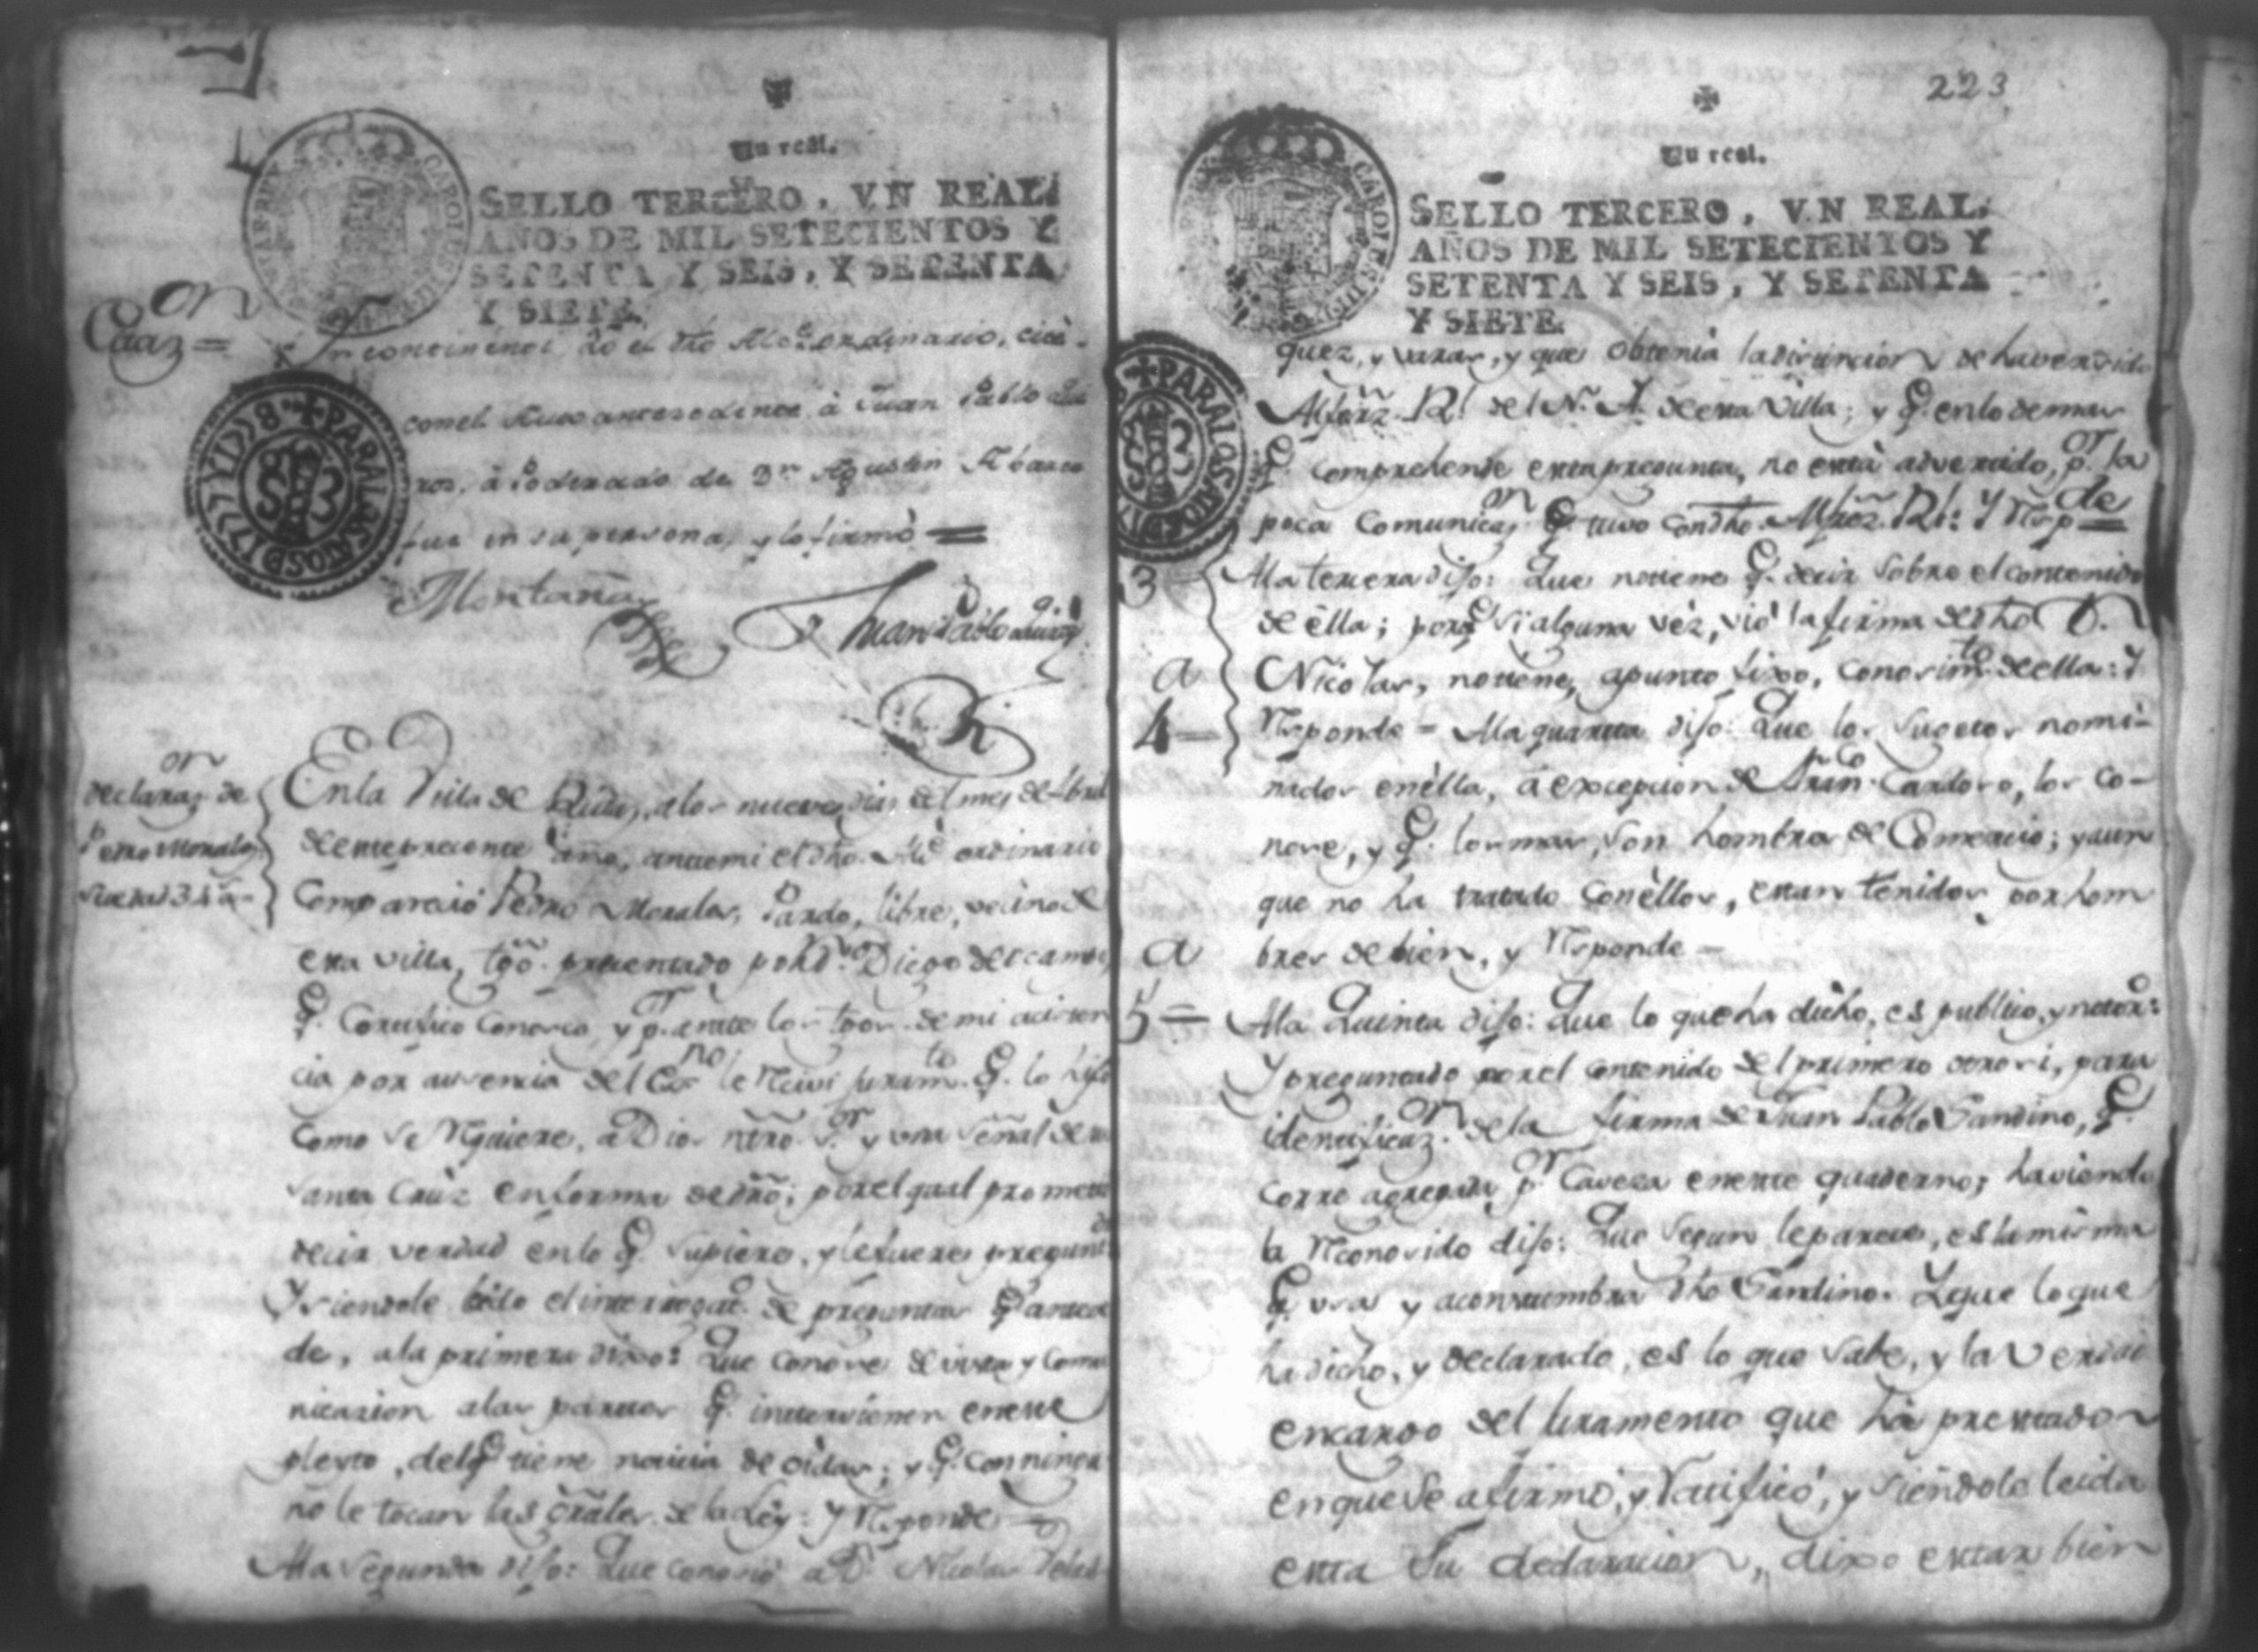 Un real.
SELLO TERCERO, VN REAL,
AÑOS DE MIL SETECIENTOS Y
SETENTA Y SEIS, Y SETENTA
Y SIETE.
Citaz.on =
Incontinenti, yo el dho Alc.e ordinario, cité
con el Auto antesedente à Juan Pablo
apoderado de Dn Agustin
fue en su persona, y lo firmò =
Montaña
Juan Pablo
declaraz.on de
Pedro Morales
En la Villa de a los nueve dias del mes de Abril
de este presente año, ante mi el dho Alc.e ordinario
Comparecio Pedro Morales, Pardo, libre, vecino de
esta villa, tgõ. presentado por Dn. Diego de ocampo,
q.e Certifico Conosco, y p.r ante los tgõs. de mi acisten
cia por ausencia del Es.no le Reciví juram.to q.e lo hiso
Como se Rquiere, a Dios ntrõ S.or y una señal de
Santa Cruz en forma de drõ; por el qual prometió
decir verdad en lo q.e supiere, y le fuere pregunt.do
Y siendole leido el interrogat.o de preguntas q.e antece
de, a la primera dixo: Que conose de vista y Comu
nicazion a las partes q.e intervienen en este
pleyto, del q.e tiene noticia de oidas; y q.e con ningu
no le tocan las grãles. de la Ley: Y Rsponde =
Ala segunda dijo: Que Conosió a Dn. Nicolas
223
Un real.
SELLO TERCERO, VN REAL,
AÑOS DE MIL SETECIENTOS Y
SETENTA Y SEIS, Y SETENTA
Y SIETE.
PARA LOS AÑOS D 1777 Y D 78
quez, y y que obtenia la distincion de haver sido
Alferz. Rl. del N. A. de esta Villa; y q.e en lo demas
q.e comprehende esta pregunta, no está advertido, p.or la
poca Comunicaz.on q.e tuvo con dho. Alferez Rl: Y Rsp.de =
3 Ala tercera dijo: Que no tiene q.e decir sobre el contenido
de élla; porq.e si alguna vez, vió la firma de dho D.n
Nicolas, no tiene, apunto fixo, conosim.to de ella: Y
a 4 = Rsponde = Ala quarta dijo: Que los sugetos nomi-
nados en élla, à excepcion de Fran.co Cardoso, los co-
nose, y q.e los mas, son hombres de Comercio; y aun
que no ha tratado con éllos, estan tenidos por hom
bres de bien, y Rsponde =
a 5 = Ala Quinta dijo: Que lo que ha dicho, es publico, y notor.o
Y preguntado por el contenido del primero otrosi, para
identificaz.on de la firma de Juan Pablo Sandino, q.e
corre agregada p.r Caveza en este quaderno; haviendo
la Rconosido dijo: Que segun le parece, es la misma
q.e usa y acostumbra dho Sandino. Y que lo que
ha dicho, y declarado, es lo que save, y la verdad
en cargo del juramento que ha prestado
en que se afirmó, y Ratificó, y siendole leida
esta su declaracion, dixo estar bien